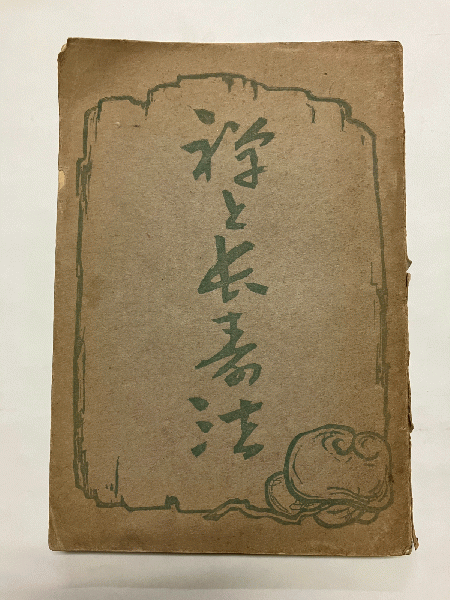 禅と長寿法